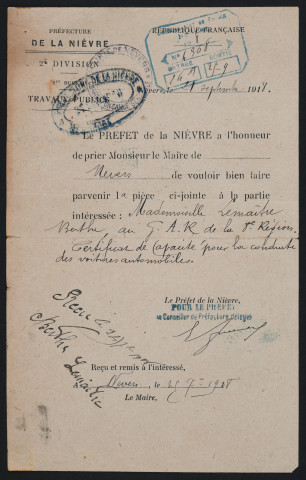 PRÉFECTURE
DE LA NIÈVRE
2e DIVISION
TRAVAUX PUBLICS
RÉPUBLIQUE FRANÇAISE
Nevers, le 21 Septembre 1918.
LE PREFET de la NIÈVRE a l'honneur
de prier Monsieur le Maire de
Nevers de vouloir bien faire
parvenir la pièce ci-jointe à la partie
intéressée : Mademoiselle Lemaître
Berthe, au P.A.R. de la 8e Région.
Certificat de capacité pour la conduite
des voitures automobiles.
Le Préfet de la Nièvre,
POUR LE PREFET
Le Conseiller de Préfecture délégué
Berthe Lemaître
Reçu et remis à l'intéressé,
Nevers, le 25 7bre 1918
Le Maire,